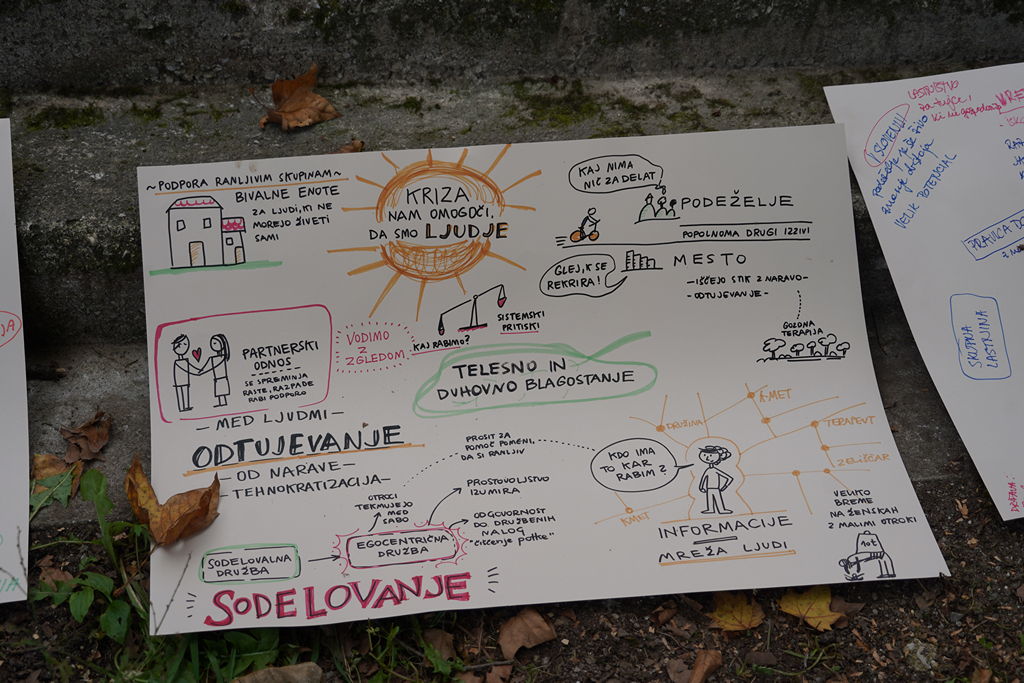 ~PODPORA RANLJIVIM SKUPINAM~
BIVALNE ENOTE
ZA LJUDI, KI NE
MOREJO ŽIVETI
SAMI
KRIZA
NAM OMOGOČI,
DA SMO LJUDJE
KAJ NIMA
NIČ ZA DELAT
PODEŽELJE
POPOLNOMA DRUGI IZZIVI
MESTO
GLEJ, K SE
REKRIRA!
-IŠČEJO STIK Z NARAVO-
-ODTUJEVANJE-
GOZDNA
TERAPIJA
PARTNERSKI
ODNOS
SE SPREMINJA
RASTE, RAZPADE
RABI PODPORO
VODIMO
Z
ZGLEDOM
KAJ RABIMO?
SISTEMSKI
PRITISKI
TELESNO IN
DUHOVNO BLAGOSTANJE
-MED LJUDMI-
ODTUJEVANJE
-OD NARAVE-
-TEHNOKRATIZACIJA-
PROSIT ZA
POMOČ POMENI,
DA SI RANLJIV
OTROCI
TEKMUJEJO
MED
SABO
PROSTOVOLJSTVO
IZUMIRA
ODGOVORNOST
DO DRUŽBENIH
NALOG
"ČIŠČENJE POTKE"
SODELOVALNA
DRUŽBA
EGOCENTRIČNA
DRUŽBA
SODELOVANJE
KDO IMA
TO KAR
RABIM?
DRUŽINA
KMET
TERAPEVT
ZELIŠČAR
KMET
INFORMACIJE
MREŽA LJUDI
VELIKO
BREME
NA ŽENSKAH
Z MALIMI OTROKI
LASTNIŠTVO
za tujce!
V SLOVENIJI
VELIK POTENCIAL
PRAVICA
SKUPNA
LASTNINA